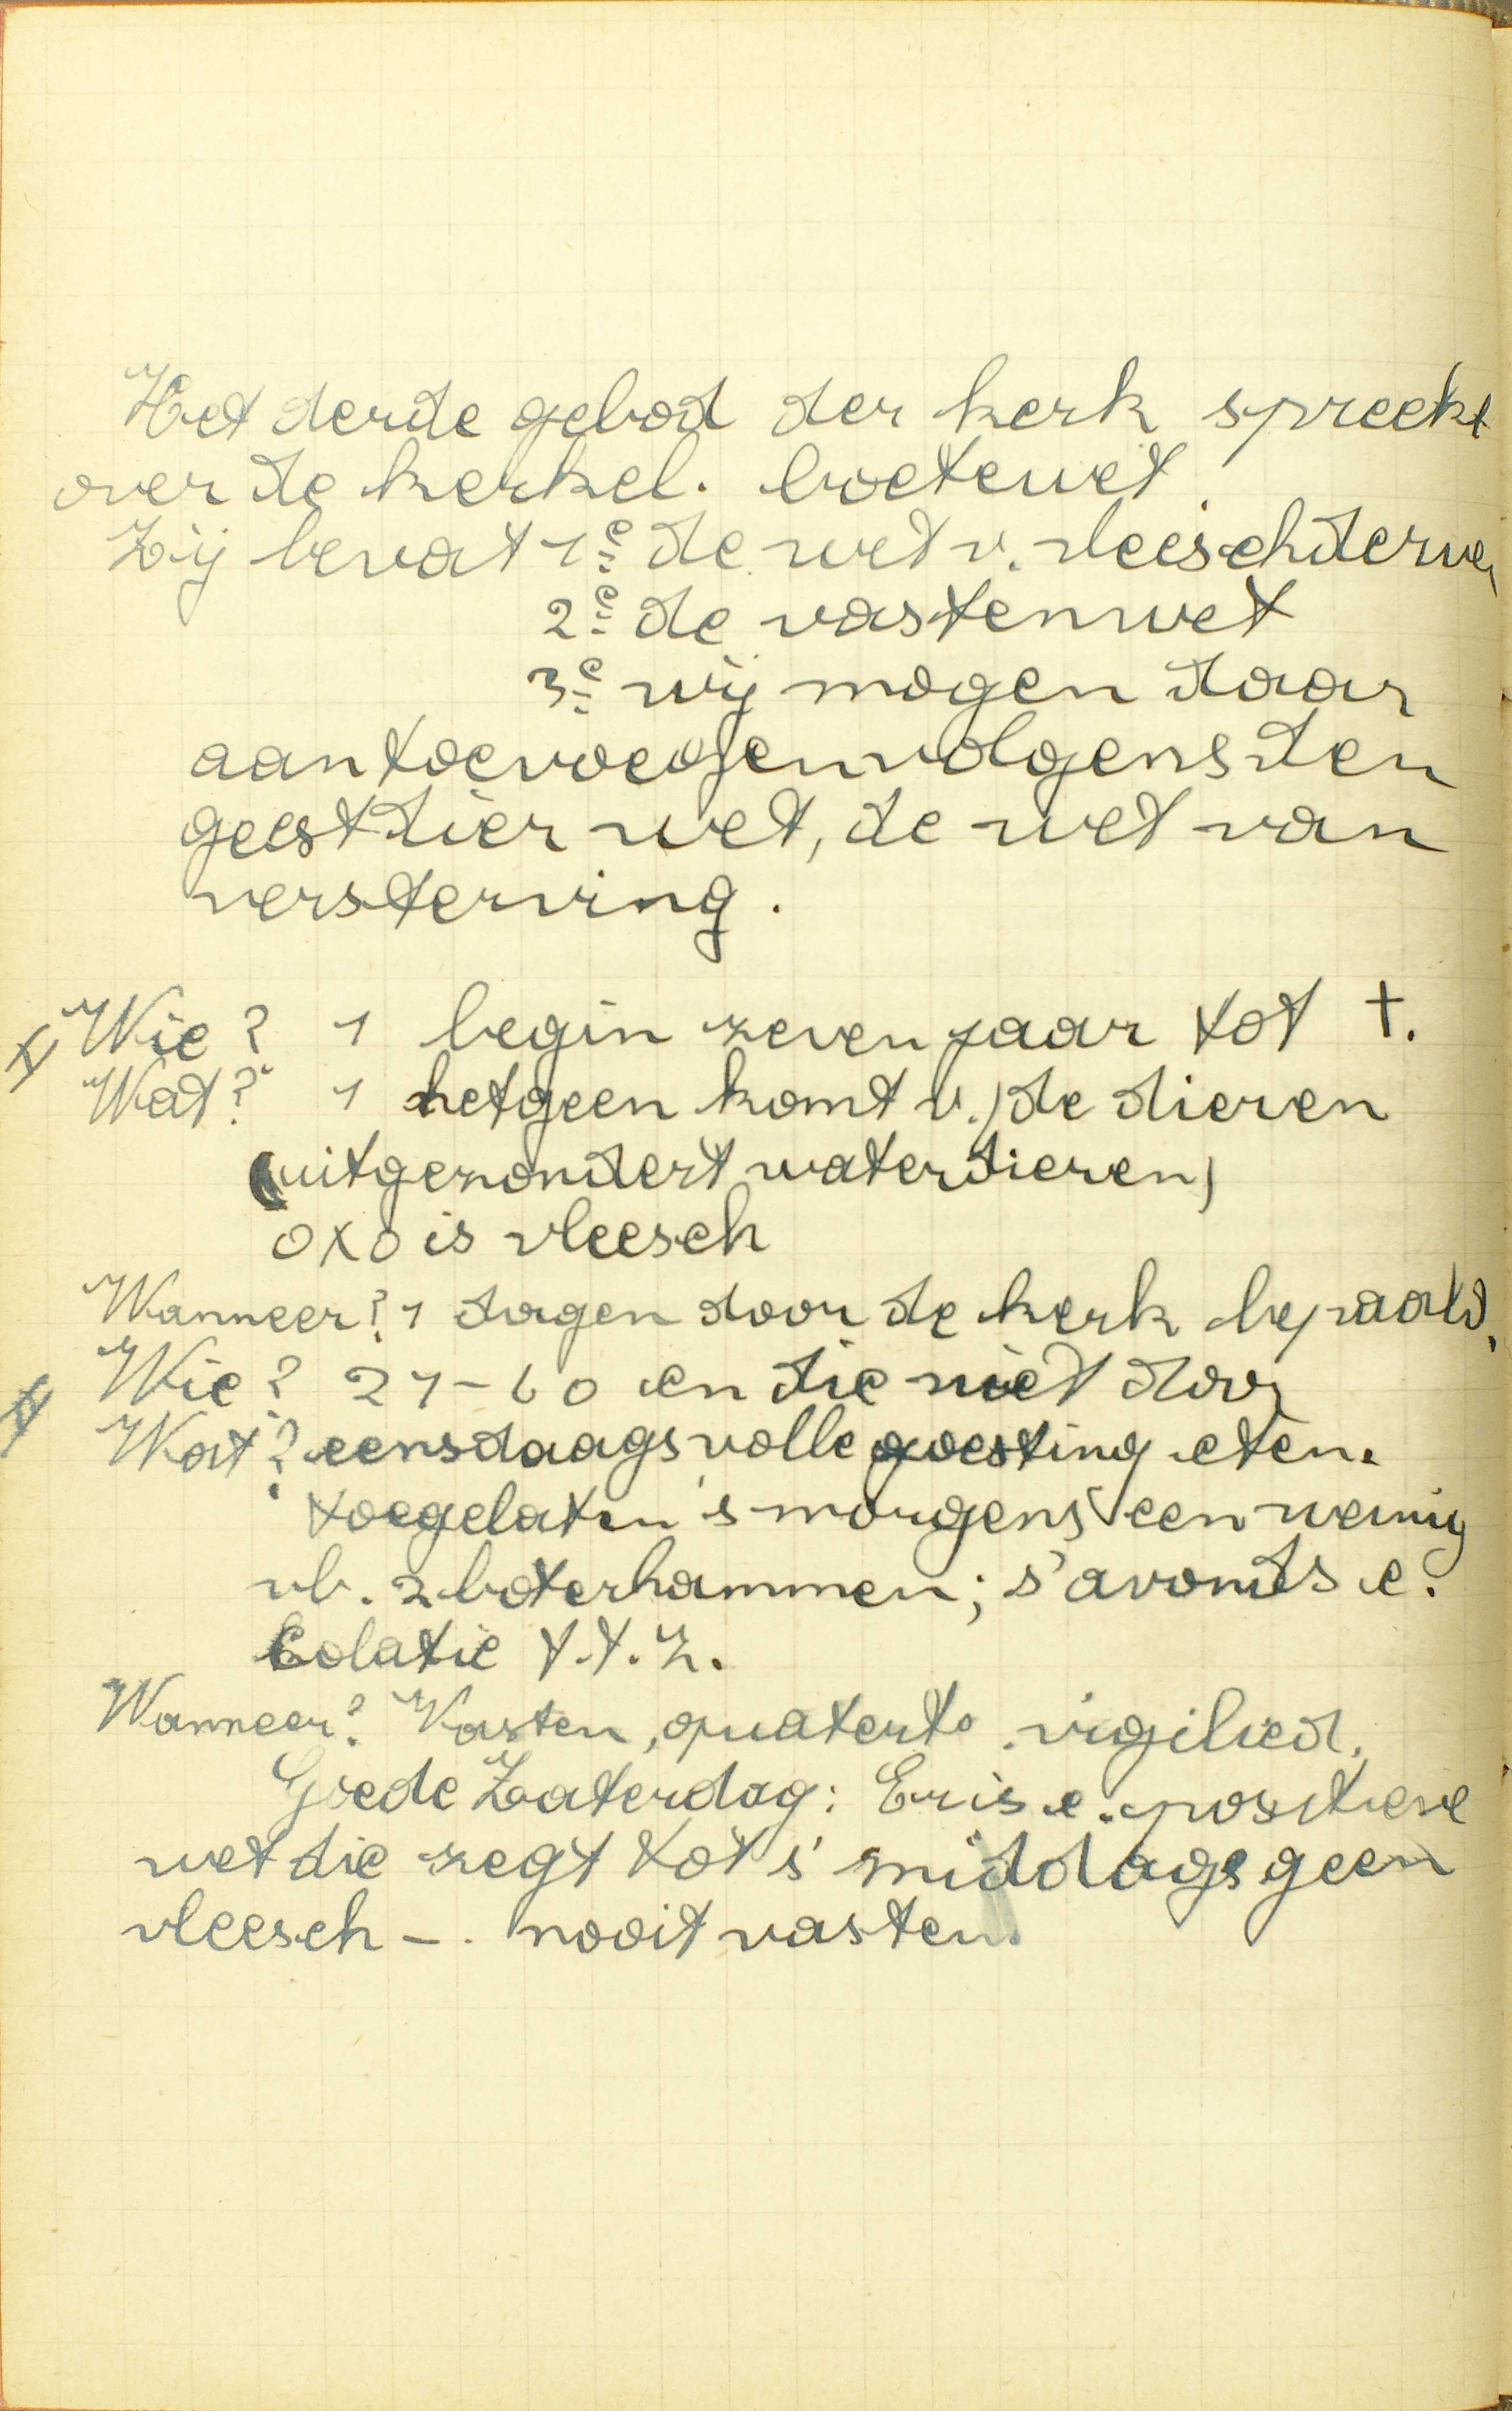 Het derde gebod der kerk spreekt
over de kerkel. boetewet.
Zij bevat 1e de wet v. vleeschderven
2e de vastenwet
3e wij mogen daar
aan toevoegen volgens den
geest dier wet, de wet van
versterving.
Wie? 1 begin zeven jaar tot †.
Wat? 1 hetgeen komt v. de dieren
(uitgezondert waterdieren)
oxo is vleesch
Wanneer? 1 dagen door de kerk bepaald.
Wie? 21-60 en die niet
Wat? eensdaags volle goesting eten.
toegelaten 's morgens een weinig
vb. 2 boterhammen; s'avonds e.
Colatie t.t.z.
Wanneer? Vasten, quatert. vigilied.
Goede Zaterdag: Er is e. positieve
wet die zegt tot s' middags geen
vleesch - . nooit vasten.